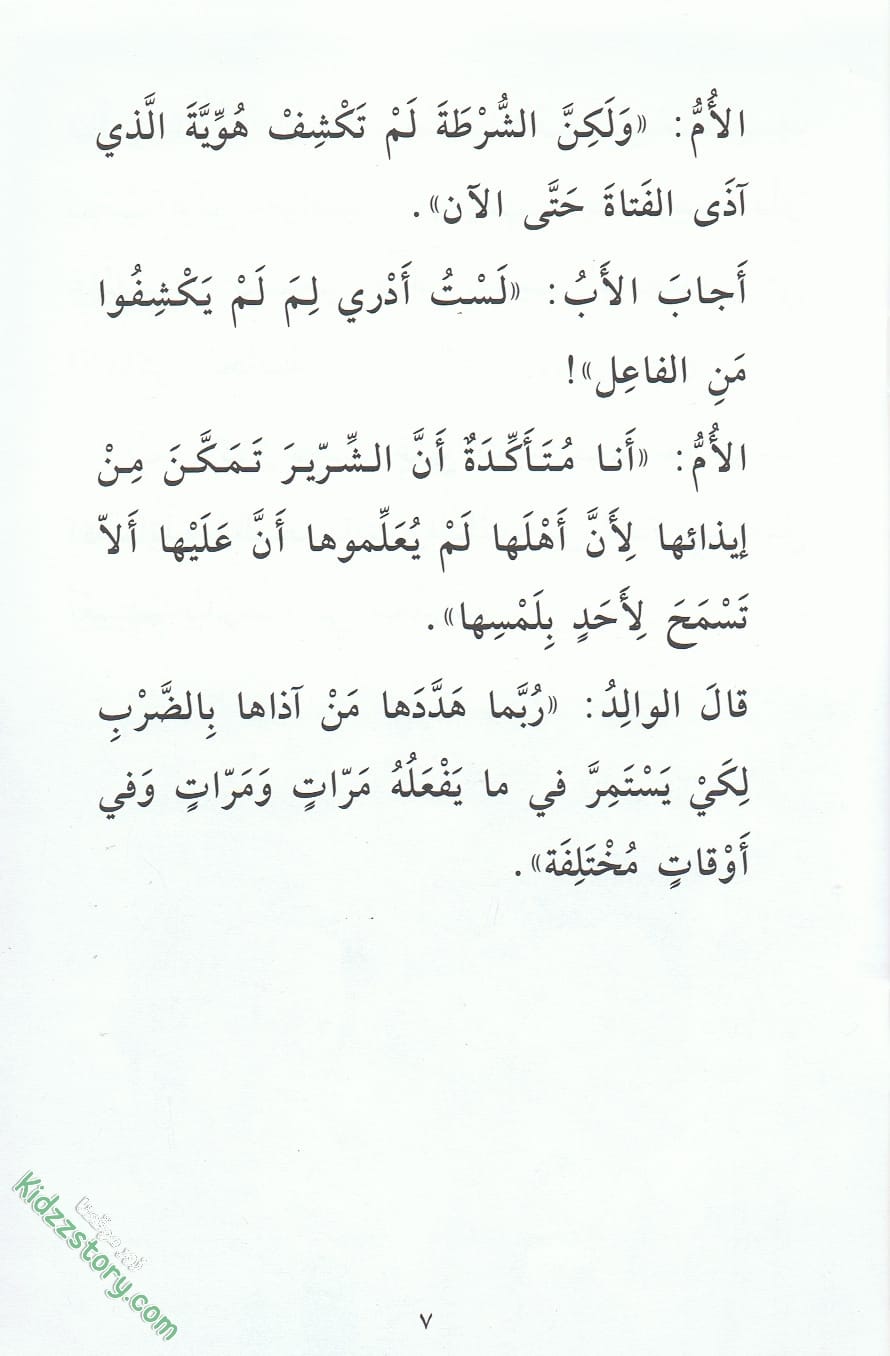 الأُمُّ: «وَلَكِنَّ الشُّرْطَةَ لَمْ تَكْشِفْ هُوِّيَّةَ الَّذي
آذَى الفَتاةَ حَتَّى الآن».
أَجابَ الأَبُ: «لَسْتُ أَدْري لِمَ لَمْ يَكْشِفُوا
مَنِ الفاعِل»!
الأُمُّ: «أَنا مُتَأَكِّدَةٌ أَنَّ الشِّرّيرَ تَمَكَّنَ مِنْ
إيذائها لِأَنَّ أَهْلَها لَمْ يُعَلِّموها أَنَّ عَلَيْها أَلاّ
تَسْمَحَ لِأَحَدٍ بِلَمْسِها».
قالَ الوالِدُ: «رُبَّما هَدَّدَها مَنْ آذاها بِالضَّرْبِ
لِكَيْ يَسْتَمِرَّ في ما يَفْعَلُهُ مَرّاتٍ وَمَرّاتٍ وَفي
أَوْقاتٍ مُخْتَلِفَة».
Kidzzstory.com
٧